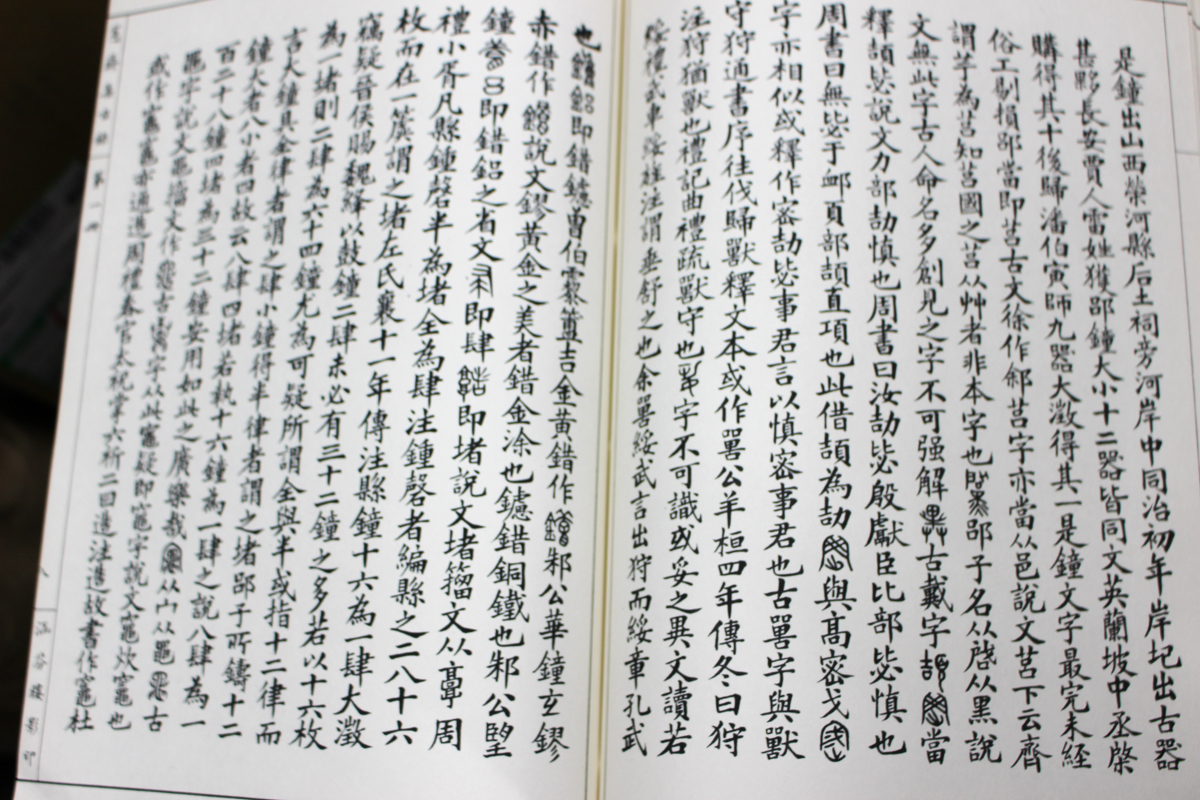 是鐘出山西榮河縣后土祠旁河岸中同治初年岸圮出古器
甚夥長安賈人雷姓獲郘鐘大小十二器皆同文英蘭坡中丞棨
購得其十後歸潘伯寅師九器大澂得其一是鐘文字最完未經
俗工剔損郘當即莒古文徐作䣄莒字亦當从邑說文莒下云齊
謂芋為莒知莒國之莒从艸者非本字也 郘子名从啓从黑說
文無此字古人命名多創見之字不可强解 古戴字 當
釋頡毖說文力部劼慎也周書曰汝劼毖殷獻臣比部毖慎也
周書曰無毖于卹頁部頡直項也此借頡為劼 與高密戈
字亦相似或釋作密劼毖事君言以慎密事君也古嘼字與獸
守狩通書序往伐歸獸釋文本或作嘼公羊桓四年傳冬曰狩
注狩猶獸也禮記曲禮疏獸守也 字不可識或妥之異文讀若
綏禮武車綏旌注謂垂舒之也余嘼綏武言出狩而綏章孔武
也 即錯鑢曾伯霥簠吉金黃錯作 邾公華鐘玄鏐
赤錯作 說文鏐黃金之美者錯金涂也鑢錯銅鐵也邾公望
鐘 呂即錯鋁之省文 即肆 即堵說文堵籀文从𩫏周
禮小胥凡縣鍾磬半為堵全為肆注鍾磬者編縣之二八十六
枚而在一虡謂之堵左氏襄十一年傳注縣鐘十六為一肆大澂
竊疑晉侯賜魏絳以鼓鐘二肆未必有三十二鐘之多若以十六枚
為一堵則二肆為六十四鐘尤為可疑所謂全與半或指十二律而
言大鐘具全律者謂之肆小鐘得半律者謂之堵郘子所鑄十二
鐘大者八小者四故云八肆四堵若執十六鐘為一肆之說八肆為一
百二十八鐘四堵為三十二鐘安用如此之廣樂哉 从宀从黽 古
黽字說文黽籀文作 古 字从此竈疑即竈字說文竈炊竈也
或作竈竈亦通造周禮春官大祝掌六祈二曰造注造故書作竈杜
第一冊
八
涵芬樓影印